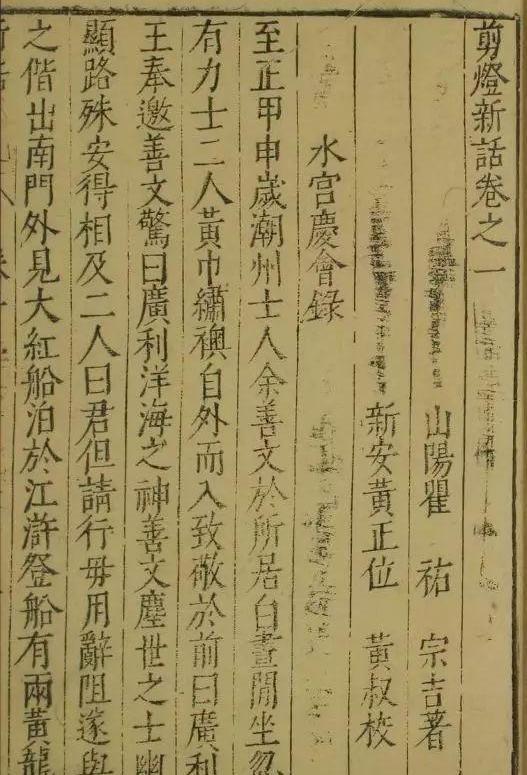 剪燈新話卷之一
山陽瞿 祐 宗吉著
新安黃正位 黃叔校
水宮慶會錄
至正甲申歲潮州士人余善文於所居白晝閒坐忽
有力士二人黃巾繡襖自外而入致敬於前曰廣利
王奉邀善文驚曰廣利洋海之神善文塵世之士幽
顯路殊安得相及二人曰君但請行毋用辭阻遂與
之偕出南門外見大紅船泊於江滸登船有兩黃龍